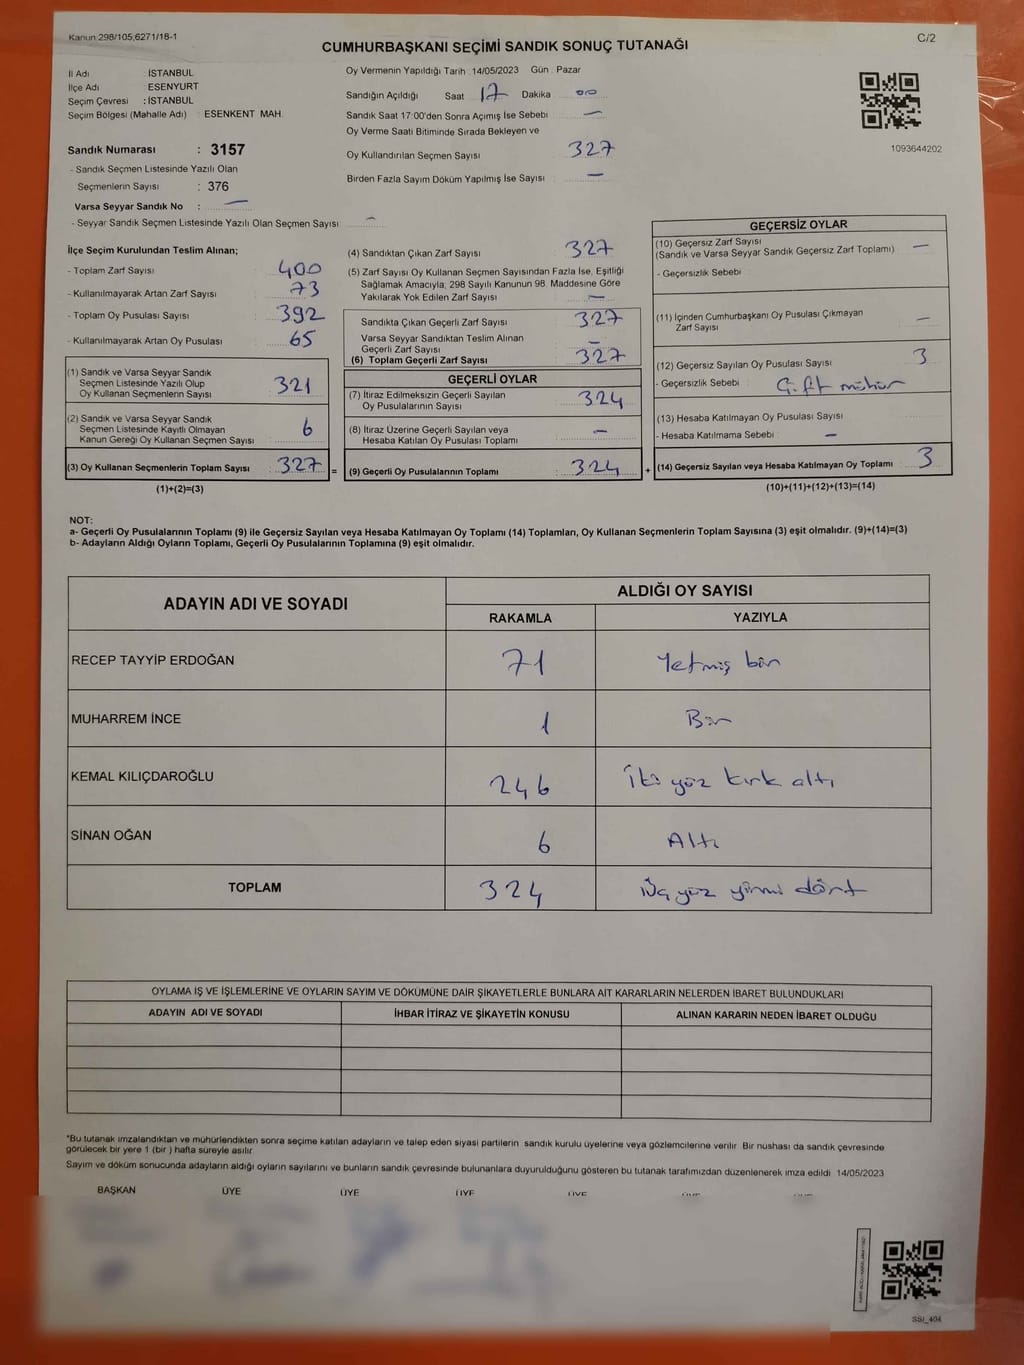 Kanun 298/105,6271/18-1
C/2
CUMHURBAŞKANI SEÇİMİ SANDIK SONUÇ TUTANAĞI
İl Adı : İSTANBUL
İlçe Adı : ESENYURT
Seçim Çevresi : İSTANBUL
Seçim Bölgesi (Mahalle Adı) : ESENKENT MAH.
Sandık Numarası : 3157
- Sandık Seçmen Listesinde Yazılı Olan
Seçmenlerin Sayısı : 376
Varsa Seyyar Sandık No : —
- Seyyar Sandık Seçmen Listesinde Yazılı Olan Seçmen Sayısı: —
Oy Vermenin Yapıldığı Tarih :14/05/2023 Gün : Pazar
Sandığın Açıldığı Saat 17 Dakika 00
Sandık Saat 17:00'den Sonra Açımış İse Sebebi —
Oy Verme Saati Bitiminde Sırada Bekleyen ve
Oy Kullandırılan Seçmen Sayısı 327
Birden Fazla Sayım Döküm Yapılmış İse Sayısı —
1093644202
İlçe Seçim Kurulundan Teslim Alınan;
- Toplam Zarf Sayısı 400
- Kullanılmayarak Artan Zarf Sayısı 73
- Toplam Oy Pusulası Sayısı 392
- Kullanılmayarak Artan Oy Pusulası 65
(1) Sandık ve Varsa Seyyar Sandık
Seçmen Listesinde Yazılı Olup
Oy Kullanan Seçmenlerin Sayısı 321
(2) Sandık ve Varsa Seyyar Sandık
Seçmen Listesinde Kayıtlı Olmayan
Kanun Gereği Oy Kullanan Seçmen Sayısı 6
(3) Oy Kullanan Seçmenlerin Toplam Sayısı 327 =
(1)+(2)=(3)
(4) Sandıktan Çıkan Zarf Sayısı 327
(5) Zarf Sayısı Oy Kullanan Seçmen Sayısından Fazla İse, Eşitliği
Sağlamak Amacıyla; 298 Sayılı Kanunun 98. Maddesine Göre
Yakılarak Yok Edilen Zarf Sayısı —
Sandıkta Çıkan Geçerli Zarf Sayısı 327
Varsa Seyyar Sandıktan Teslim Alınan
Geçerli Zarf Sayısı —
(6) Toplam Geçerli Zarf Sayısı 327
GEÇERLİ OYLAR
(7) İtiraz Edilmeksizin Geçerli Sayılan
Oy Pusulalarının Sayısı 324
(8) İtiraz Üzerine Geçerli Sayılan veya
Hesaba Katılan Oy Pusulası Toplamı —
(9) Geçerli Oy Pusulalarının Toplamı 324 +
GEÇERSİZ OYLAR
(10) Geçersiz Zarf Sayısı
(Sandık ve Varsa Seyyar Sandık Geçersiz Zarf Toplamı) —
- Geçersizlik Sebebi
(11) İçinden Cumhurbaşkanı Oy Pusulası Çıkmayan
Zarf Sayısı —
(12) Geçersiz Sayılan Oy Pusulası Sayısı 3
- Geçersizlik Sebebi Çift mühür
(13) Hesaba Katılmayan Oy Pusulası Sayısı
- Hesaba Katılmama Sebebi —
(14) Geçersiz Sayılan veya Hesaba Katılmayan Oy Toplamı 3
(10)+(11)+(12)+(13)=(14)
NOT:
a- Geçerli Oy Pusulalarının Toplamı (9) ile Geçersiz Sayılan veya Hesaba Katılmayan Oy Toplamı (14) Toplamları, Oy Kullanan Seçmenlerin Toplam Sayısına (3) eşit olmalıdır. (9)+(14)=(3)
b- Adayların Aldığı Oyların Toplamı, Geçerli Oy Pusulalarının Toplamına (9) eşit olmalıdır.
ADAYIN ADI VE SOYADI
ALDIĞI OY SAYISI
RAKAMLA YAZIYLA
RECEP TAYYİP ERDOĞAN 71 Yetmiş bir
MUHARREM İNCE 1 Bir
KEMAL KILIÇDAROĞLU 246 İki yüz kırk altı
SİNAN OĞAN 6 Altı
TOPLAM 324 Üç yüz yirmi dört
OYLAMA İŞ VE İŞLEMLERİNE VE OYLARIN SAYIM VE DÖKÜMÜNE DAİR ŞİKAYETLERLE BUNLARA AİT KARARLARIN NELERDEN İBARET BULUNDUKLARI
ADAYIN ADI VE SOYADI İHBAR İTİRAZ VE ŞİKAYETİN KONUSU ALINAN KARARIN NEDEN İBARET OLDUĞU
*Bu tutanak imzalandıktan ve mühürlendikten sonra seçime katılan adayların ve talep eden siyasi partilerin sandık kurulu üyelerine veya gözlemcilerine verilir. Bir nüshası da sandık çevresinde
görülecek bir yere 1 (bir ) hafta süreyle asılır.
Sayım ve döküm sonucunda adayların aldığı oyların sayılarını ve bunların sandık çevresinde bulunanlara duyurulduğunu gösteren bu tutanak tarafımızdan düzenlenerek imza edildi. 14/05/2023
BAŞKAN ÜYE ÜYE ÜYE ÜYE
SSI_404